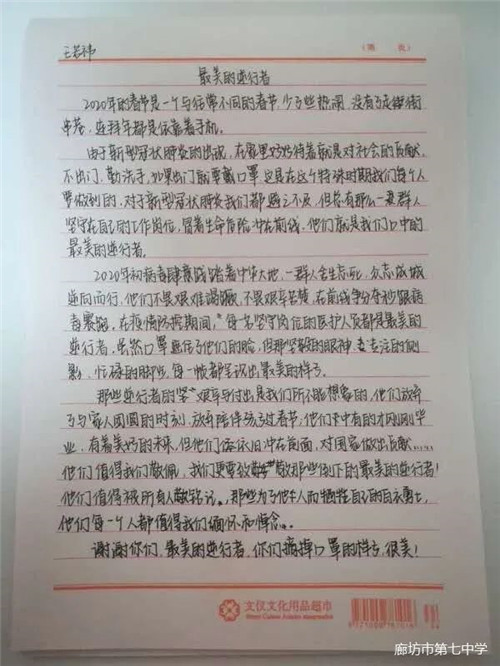 王若祎
最美的逆行者
2020年的春节是一个与往常不同的春节,少了些热闹,没有了走街
串巷,连拜年都是依靠着手机。
由于新型冠状肺炎的出现,在家里好好待着就是对社会的贡献,
不出门,勤洗手,如果出门就要戴口罩,这是在这个特殊时期我们每个人
要做到的,对于新型冠状肺炎我们都避之不及,但却有那么一群人
坚守在自己的工作岗位,冒着生命危险冲在前线,他们就是我们口中的
最美的逆行者。
2020年初病毒肆意践踏着中华大地,一群人舍生忘死,众志成城
逆向而行,他们不畏艰难
不畏艰辛
在前线争分夺秒跟病
毒赛跑,在疫情防控期间,每名坚守岗位的医护人员都是最美的
逆行者,虽然口罩遮住了他们的脸,但那坚毅的眼神,专注的侧
影,忙碌的脚步,每一帧都呈现出最美的样子。
那些逆行者的坚
艰辛与付出是我们所不能想象的,他们放弃
了与家人团圆的时刻,放弃陪伴孩子过春节,他们其中有的才刚刚毕
业,有着美好的未来,但他们依旧冲在前面,对国家做出贡献……
他们值得我们敬佩,我们更要致敬那些倒下的最美的逆行者!
他们值得被所有人
铭记。那些为了他人而牺牲自己的白衣勇士,
他们每一个人都值得我们缅怀和悼念。
谢谢你们,最美的逆行者,你们摘掉口罩的样子,很美!
文仪文化用品超市
廊坊市第七中学